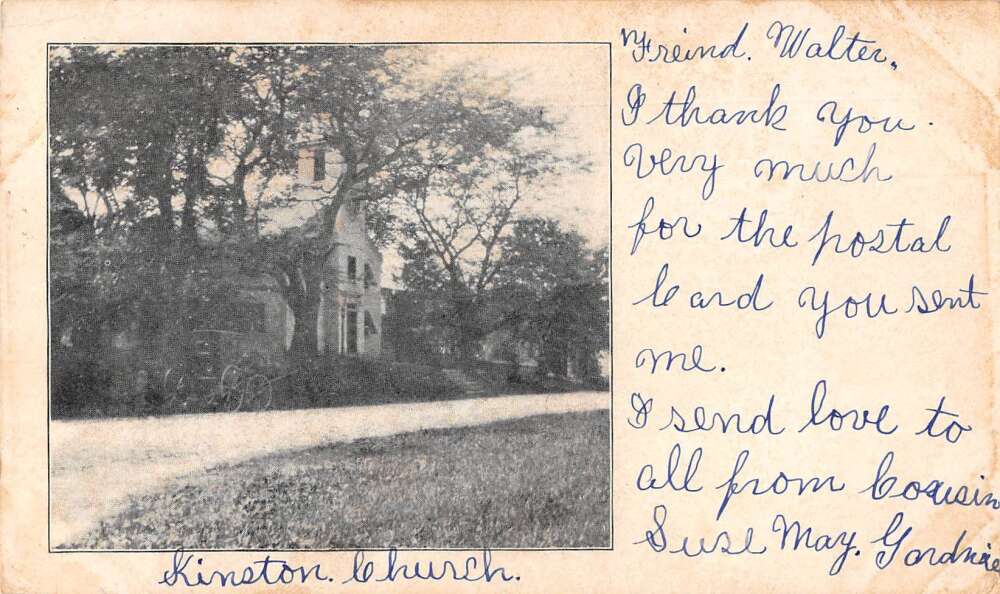 Freind. Walter.
I thank you.
Very much
for the postal
Card you sent
me.
I send love to
all from Cousin
Suse May.
Kinston. Church.